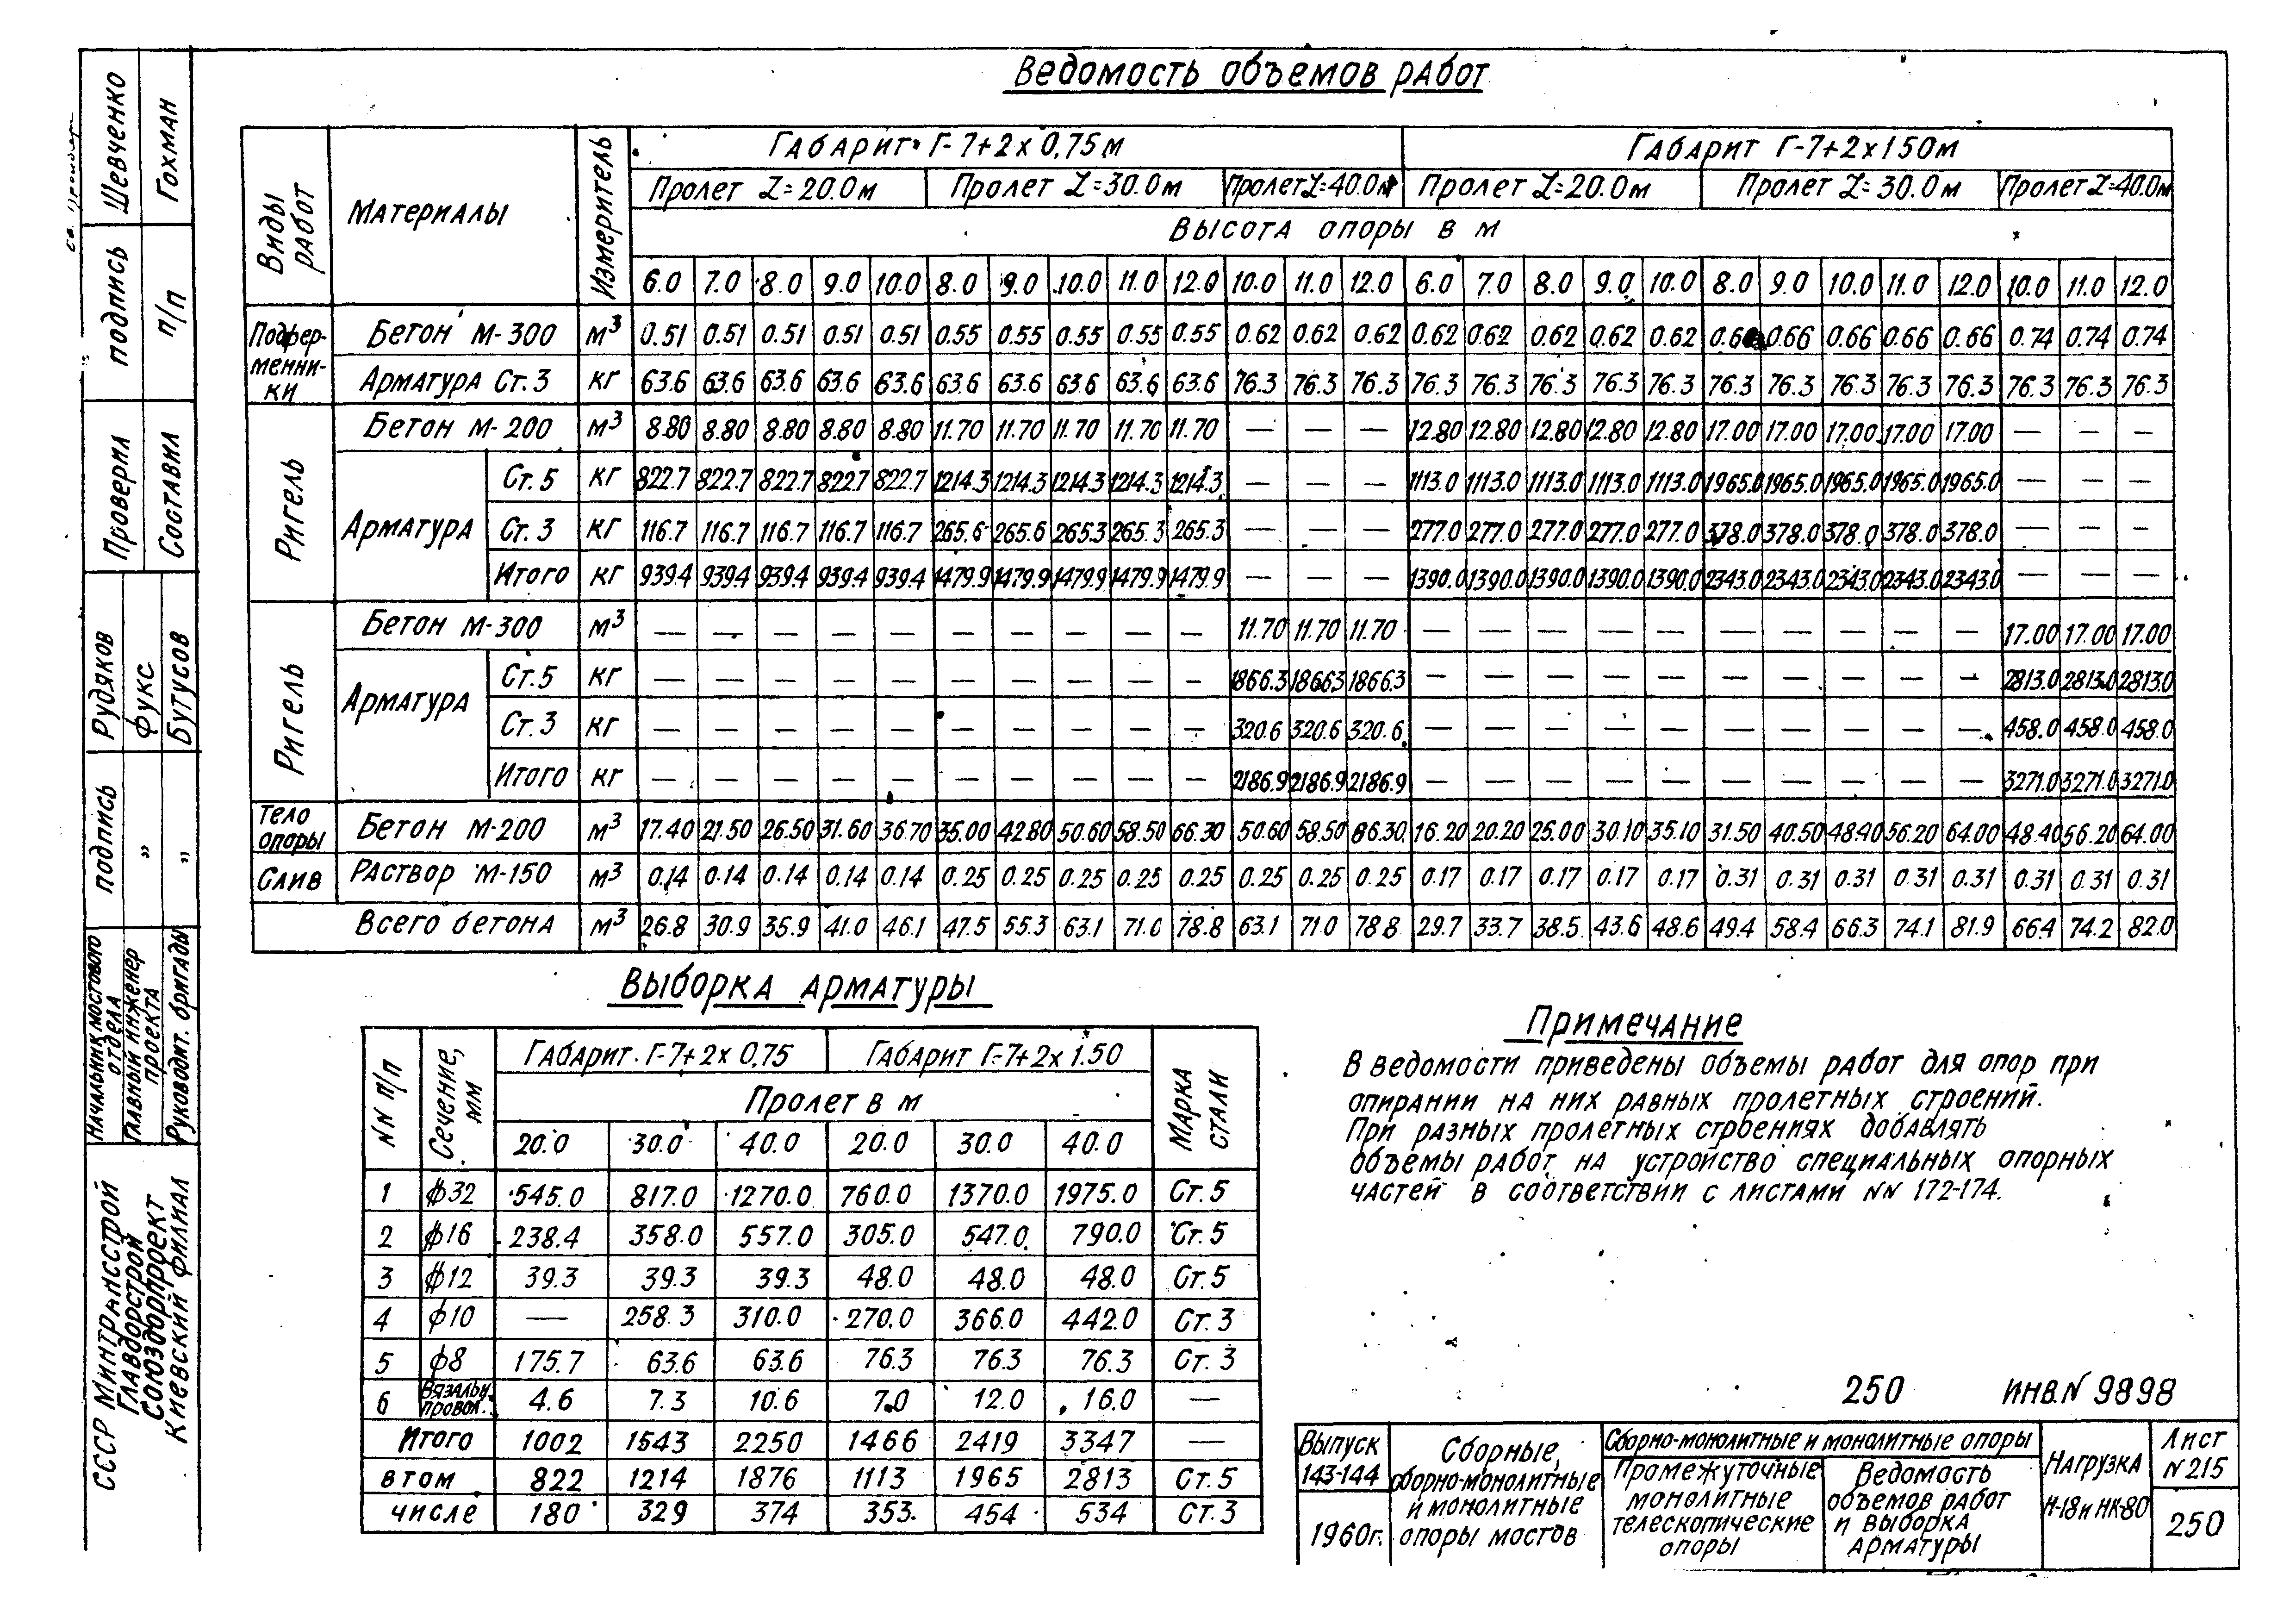 Ведомость объемов работ
Виды работ | Материалы | Измеритель | Габарит Г-7+2х0,75м | Габарит Г-7+2х1.50м
Пролет L=20.0м | Пролет L=30.0м | Пролет L=40.0м | Пролет L=20.0м | Пролет L=30.0м | Пролет L=40.0м
Высота опоры в м
6.0 7.0 8.0 9.0 10.0 8.0 9.0 10.0 11.0 12.0 10.0 11.0 12.0 6.0 7.0 8.0 9.0 10.0 8.0 9.0 10.0 11.0 12.0 10.0 11.0 12.0
Подферменники
Бетон М-300 м³ 0.51 0.51 0.51 0.51 0.51 0.55 0.55 0.55 0.55 0.55 0.62 0.62 0.62 0.62 0.62 0.62 0.62 0.62 0.66 0.66 0.66 0.66 0.66 0.74 0.74 0.74
Арматура Ст.3 кг 63.6 63.6 63.6 63.6 63.6 63.6 63.6 63.6 63.6 63.6 76.3 76.3 76.3 76.3 76.3 76.3 76.3 76.3 76.3 76.3 76.3 76.3 76.3 76.3 76.3 76.3
Ригель
Бетон М-200 м³ 8.80 8.80 8.80 8.80 8.80 11.70 11.70 11.70 11.70 11.70 — — — 12.80 12.80 12.80 12.80 12.80 17.00 17.00 17.00 17.00 17.00 — — —
Арматура
Ст.5 кг 822.7 822.7 822.7 822.7 822.7 1214.3 1214.3 1214.3 1214.3 1214.3 — — — 1113.0 1113.0 1113.0 1113.0 1113.0 1965.0 1965.0 1965.0 1965.0 1965.0 — — —
Ст.3 кг 116.7 116.7 116.7 116.7 116.7 265.6 265.6 265.3 265.3 265.3 — — — 277.0 277.0 277.0 277.0 277.0 378.0 378.0 378.0 378.0 378.0 — — —
Итого кг 939.4 939.4 939.4 939.4 939.4 1479.9 1479.9 1479.9 1479.9 1479.9 — — — 1390.0 1390.0 1390.0 1390.0 1390.0 2343.0 2343.0 2343.0 2343.0 2343.0 — — —
Ригель
Бетон М-300 м³ — — — — — — — — — — 11.70 11.70 11.70 — — — — — — — — — — 17.00 17.00 17.00
Арматура
Ст.5 кг — — — — — — — — — — 1866.3 1866.3 1866.3 — — — — — — — — — — 2813.0 2813.0 2813.0
Ст.3 кг — — — — — — — — — — 320.6 320.6 320.6 — — — — — — — — — — 458.0 458.0 458.0
Итого кг — — — — — — — — — — 2186.9 2186.9 2186.9 — — — — — — — — — — 3271.0 3271.0 3271.0
Тело опоры Бетон М-200 м³ 17.40 21.50 26.50 31.60 36.70 35.00 42.80 50.60 58.50 66.30 50.60 58.50 86.30 16.20 20.20 25.00 30.10 35.10 31.50 40.50 48.40 56.20 64.00 48.40 56.20 64.00
Слив Раствор М-150 м³ 0.14 0.14 0.14 0.14 0.14 0.25 0.25 0.25 0.25 0.25 0.25 0.25 0.25 0.17 0.17 0.17 0.17 0.17 0.31 0.31 0.31 0.31 0.31 0.31 0.31 0.31
Всего бетона м³ 26.8 30.9 35.9 41.0 46.1 47.5 55.3 63.1 71.0 78.8 63.1 71.0 78.8 29.7 33.7 38.5 43.6 48.6 49.4 58.4 66.3 74.1 81.9 66.4 74.2 82.0
Выборка арматуры
NN п/п | Сечение, мм | Габарит Г-7+2х0,75 | Габарит Г-7+2х1.50 | Марка стали
Пролет в м
20.0 30.0 40.0 20.0 30.0 40.0
1 ф32 545.0 817.0 1270.0 760.0 1370.0 1975.0 Ст.5
2 ф16 238.4 358.0 557.0 305.0 547.0 790.0 Ст.5
3 ф12 39.3 39.3 39.3 48.0 48.0 48.0 Ст.5
4 ф10 — 258.3 310.0 270.0 366.0 442.0 Ст.3
5 ф8 175.7 63.6 63.6 76.3 76.3 76.3 Ст.3
6 Вязальн. провол. 4.6 7.3 10.6 7.0 12.0 16.0 —
Итого 1002 1543 2250 1466 2419 3347 —
в том 822 1214 1876 1113 1965 2813 Ст.5
числе 180 329 374 353 454 534 Ст.3
Примечание
В ведомости приведены объемы работ для опор при
опирании на них равных пролетных строений.
При разных пролетных строениях добавлять
объемы работ на устройство специальных опорных
частей в соответствии с листами NN 172-174.
250 ИНВ.N 9898
Выпуск
143-144
1960г.
Сборные,
сборно-монолитные
и монолитные
опоры мостов
Сборно-монолитные и монолитные опоры
Промежуточные
монолитные
телескопические
опоры
Ведомость
объемов работ
и выборка
арматуры
Нагрузка
Н-18 и НК-80
Лист
N 215
250
СССР Минтрансстрой
Главдорстрой
Союздорпроект
Киевский филиал
Начальник мостового отдела подпись Рудяков
Главный инженер проекта „ Фукс
Руководит. бригады „ Бутусов
Проверил подпись Шевченко
Составил п/п Гохман